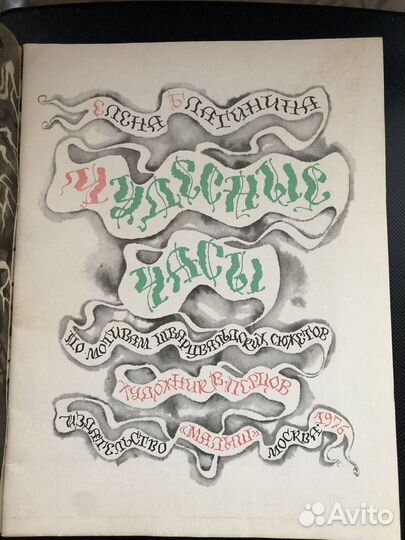 Елена Благинина
Чудесные
часы
По мотивам шварцвальдских сюжетов
Художник В. Перцов
Издательство «Малыш» Москва 1976
Avito